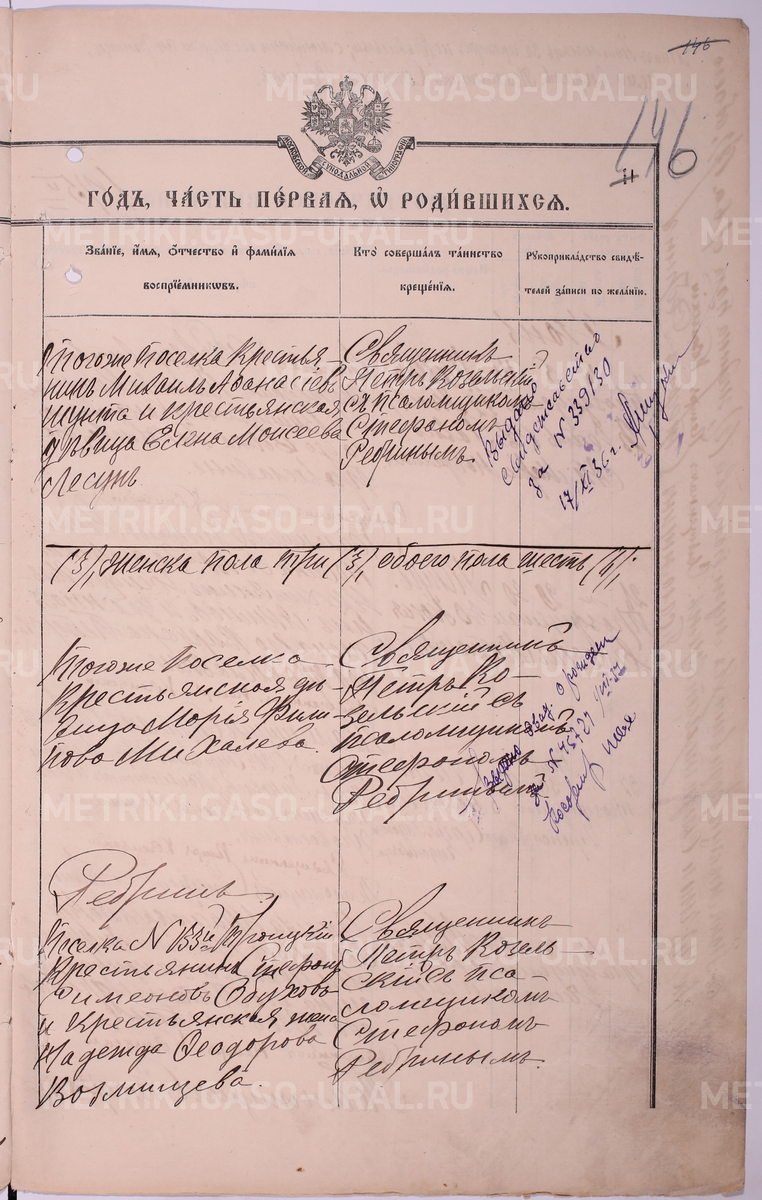 146
146
МОСКОВСКОЙ СѴНОДАЛЬНОЙ ТИПОГРАФІИ
ГОДЪ, ЧАСТЬ ПЕРВАЯ, Ѡ РОДИВШИХСЯ.
Званіе, имя, отчество и фамилія
воспріемниковъ.
Кто совершалъ таинство
крещенія.
Рукоприкладство свидѣ-
телей записи по желанію.
Тогоже поселка крестья-
нинъ Михаилъ Афанасіевъ
и крестьянская
дѣвица Елена Моисеева
Лесунъ
Священникъ
Петръ Козельскій
съ псаломщикомъ
Стефаномъ
Ребринымъ
Выдано
свидетельство
за N 339130
17/XI 36 г.
(3), женска пола три (3), обоего пола шесть (6);
Тогоже поселка
крестьянская дѣ-
вица Марія Фили-
пова Михалева.
Священникъ
Петръ Ко-
зельскій съ
псаломщикомъ
Стефаномъ
Ребринымъ
Ребринъ
Поселка N 153й Троицкій
крестьянинъ Стефанъ
Симеоновъ Обухова
и крестьянская жена
Надежда Ѳеодорова
Возмищева.
Священникъ
Петръ Козель-
скій съ пса-
ломщикомъ
Стефаномъ
Ребринымъ.
METRIKI.GASO-URAL.RU